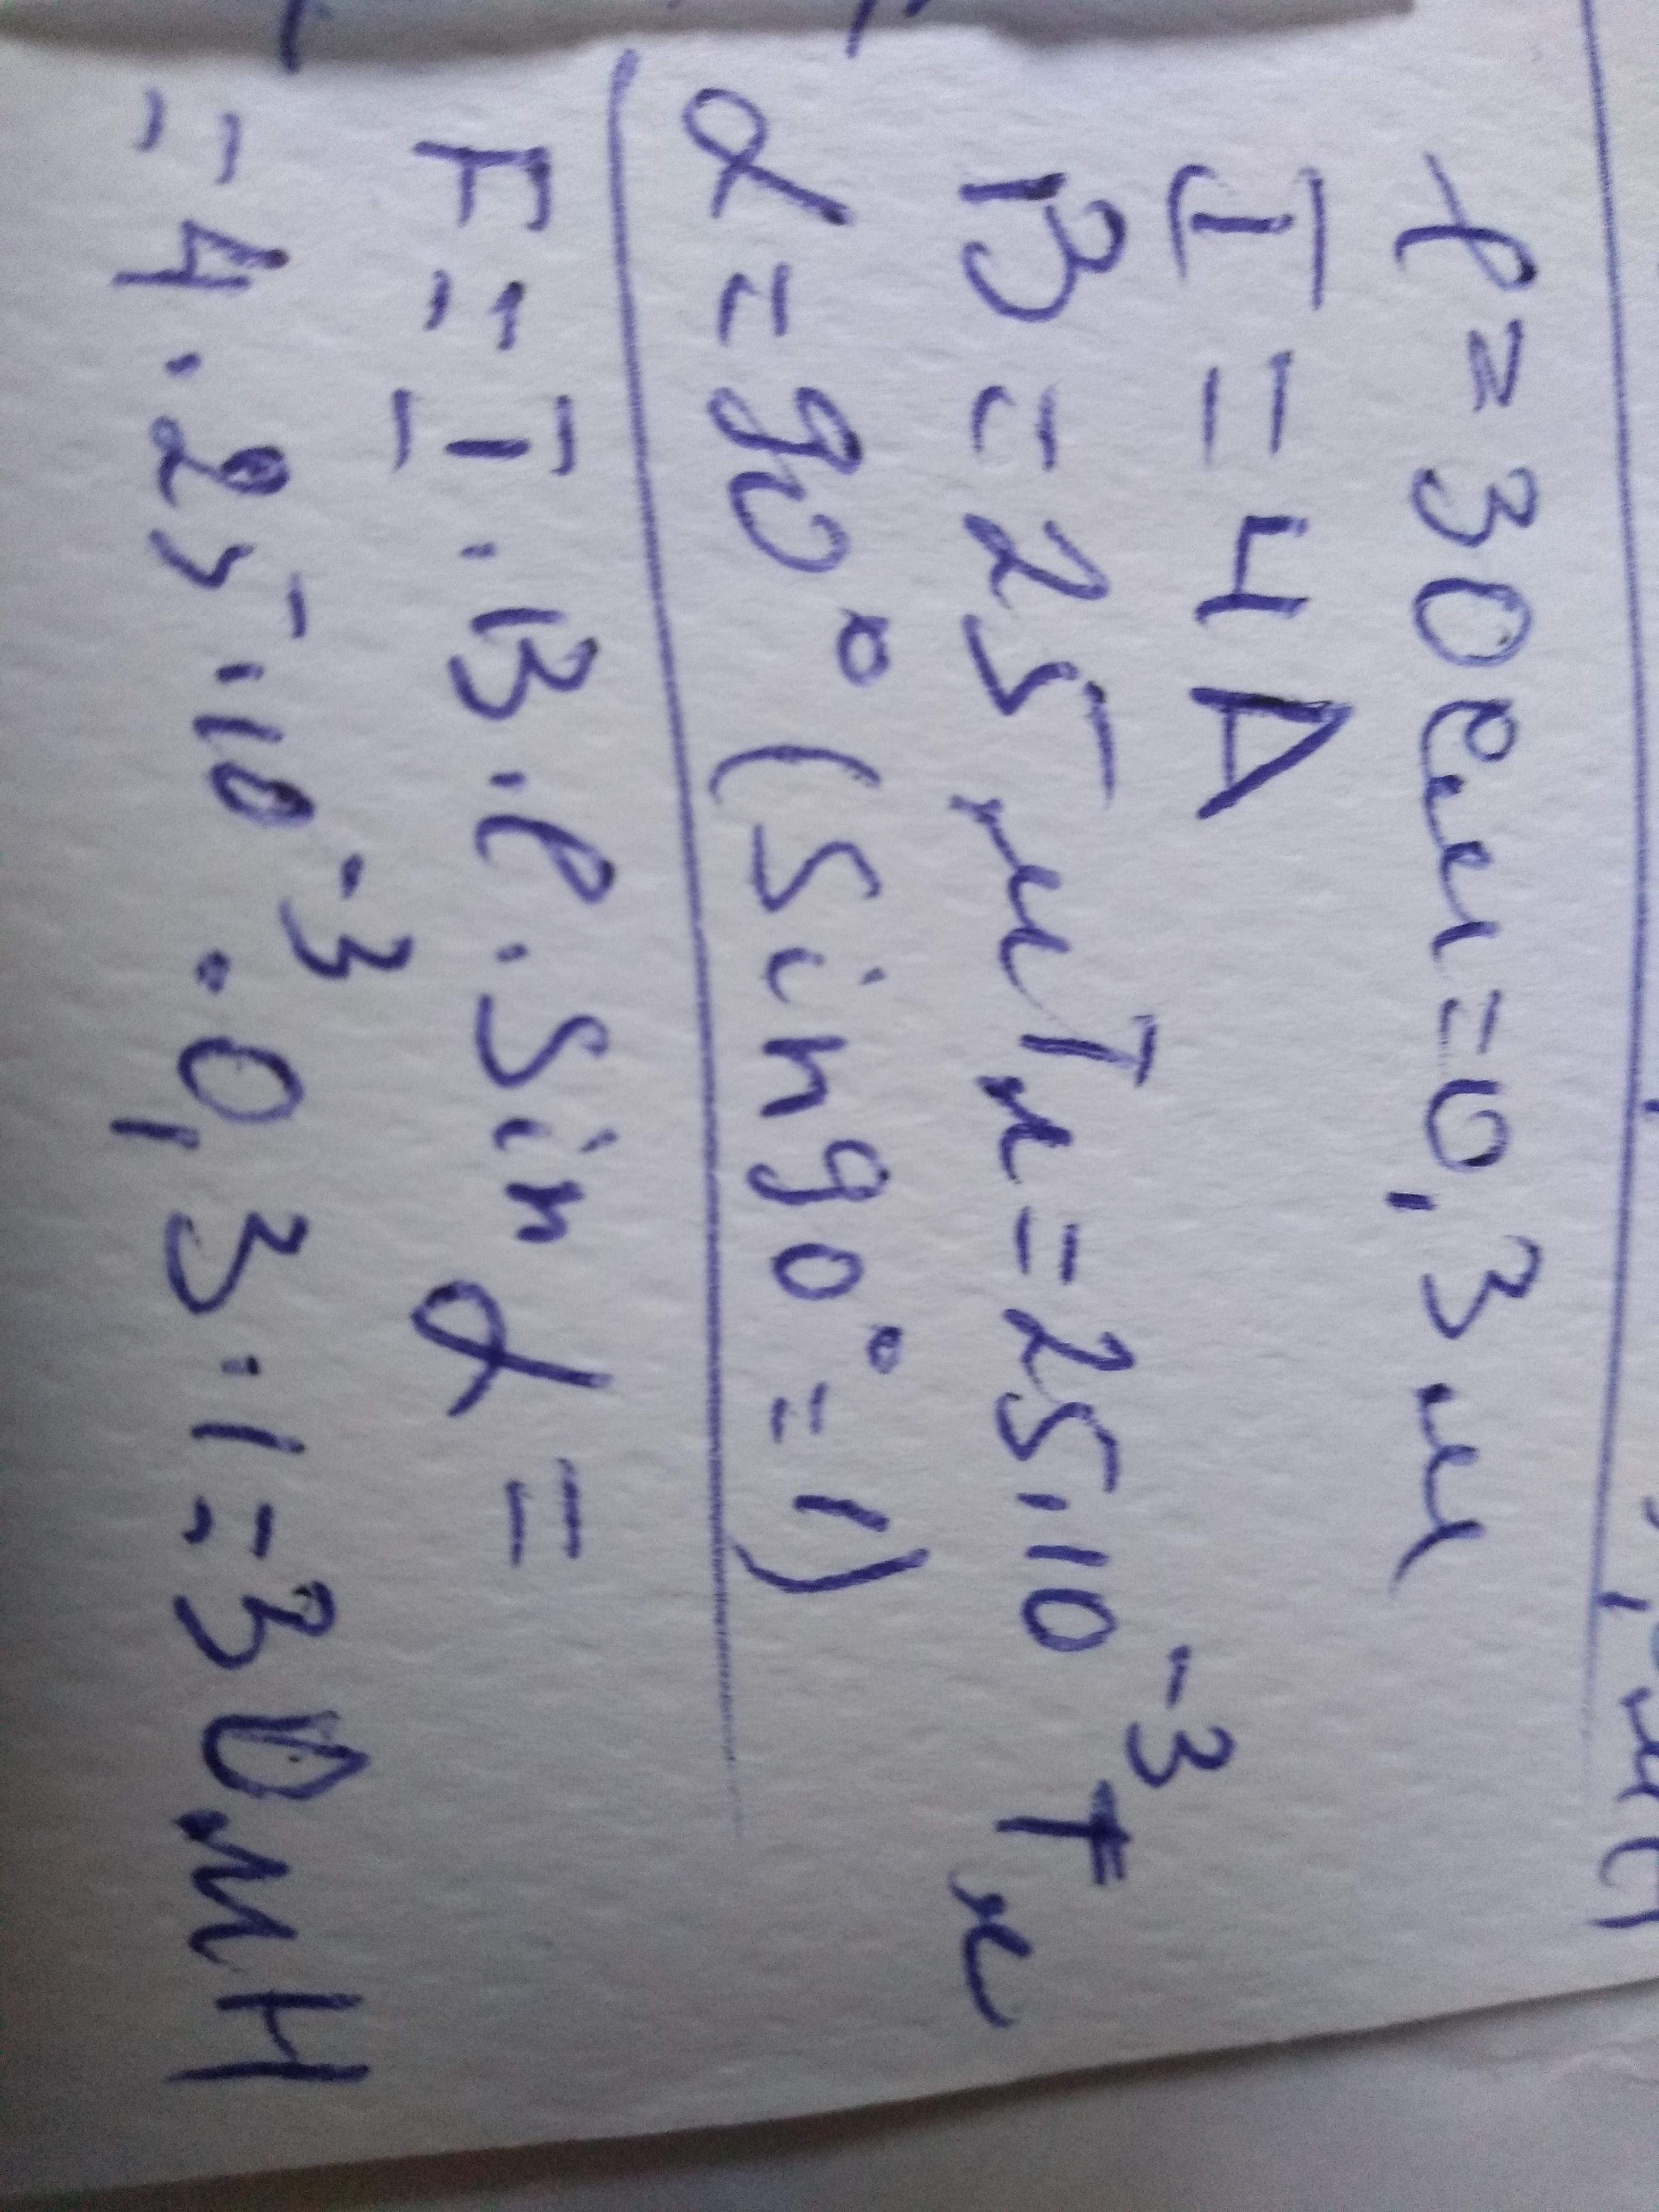 l = 30см = 0,3м
I = 4А
B = 25 мТл = 25·10⁻³ Тл
α = 90° (sin90° = 1)
F = I·B·l·sin α =
= 4·25·10⁻³·0,3·1 = 30мН